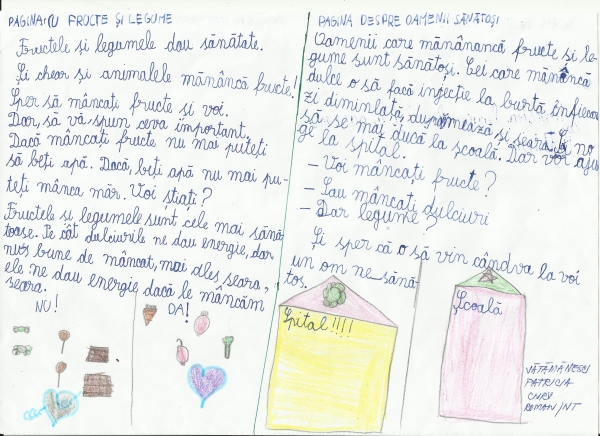 PAGINA CU FRUCTE ȘI LEGUME
Fructele și legumele dau sănătate.
Și chear și animalele mănâncă fructe!
Sper să mâncați fructe și voi.
Dar, să vă spun ceva important.
Dacă mâncați fructe nu mai puteți
să beți apă. Dacă, beți apă nu mai pu-
teți mânca măr. Voi știați?
Fructele și legumele sunt cele mai sănă-
toase. Pe cât dulciurile ne dau energie, dar
nu-s bune de mâncat, mai ales seara,
ele ne dau energie dacă le mâncăm
seara.
NU!
DA!
PAGINA DESPRE OAMENII SĂNĂTOȘI
Oamenii care mănânancă fructe și le-
gume sunt sănătoși. Cei care mănâncă
dulce o să facă injecție la burtă înfiecare
zi dimineață, dupămează și seara. Și no
să se mai ducă la școală. Dar vor ajun
ge la spital.
– Voi mâncați fructe?
– Sau mâncați dulciuri
– Dar legume?
Și sper că o să vin cândva la voi
un om ne sănă-
tos.
Spital!!!!
Școală
VĂTĂMĂNESCU
PATRICIA
ROMAN/NT